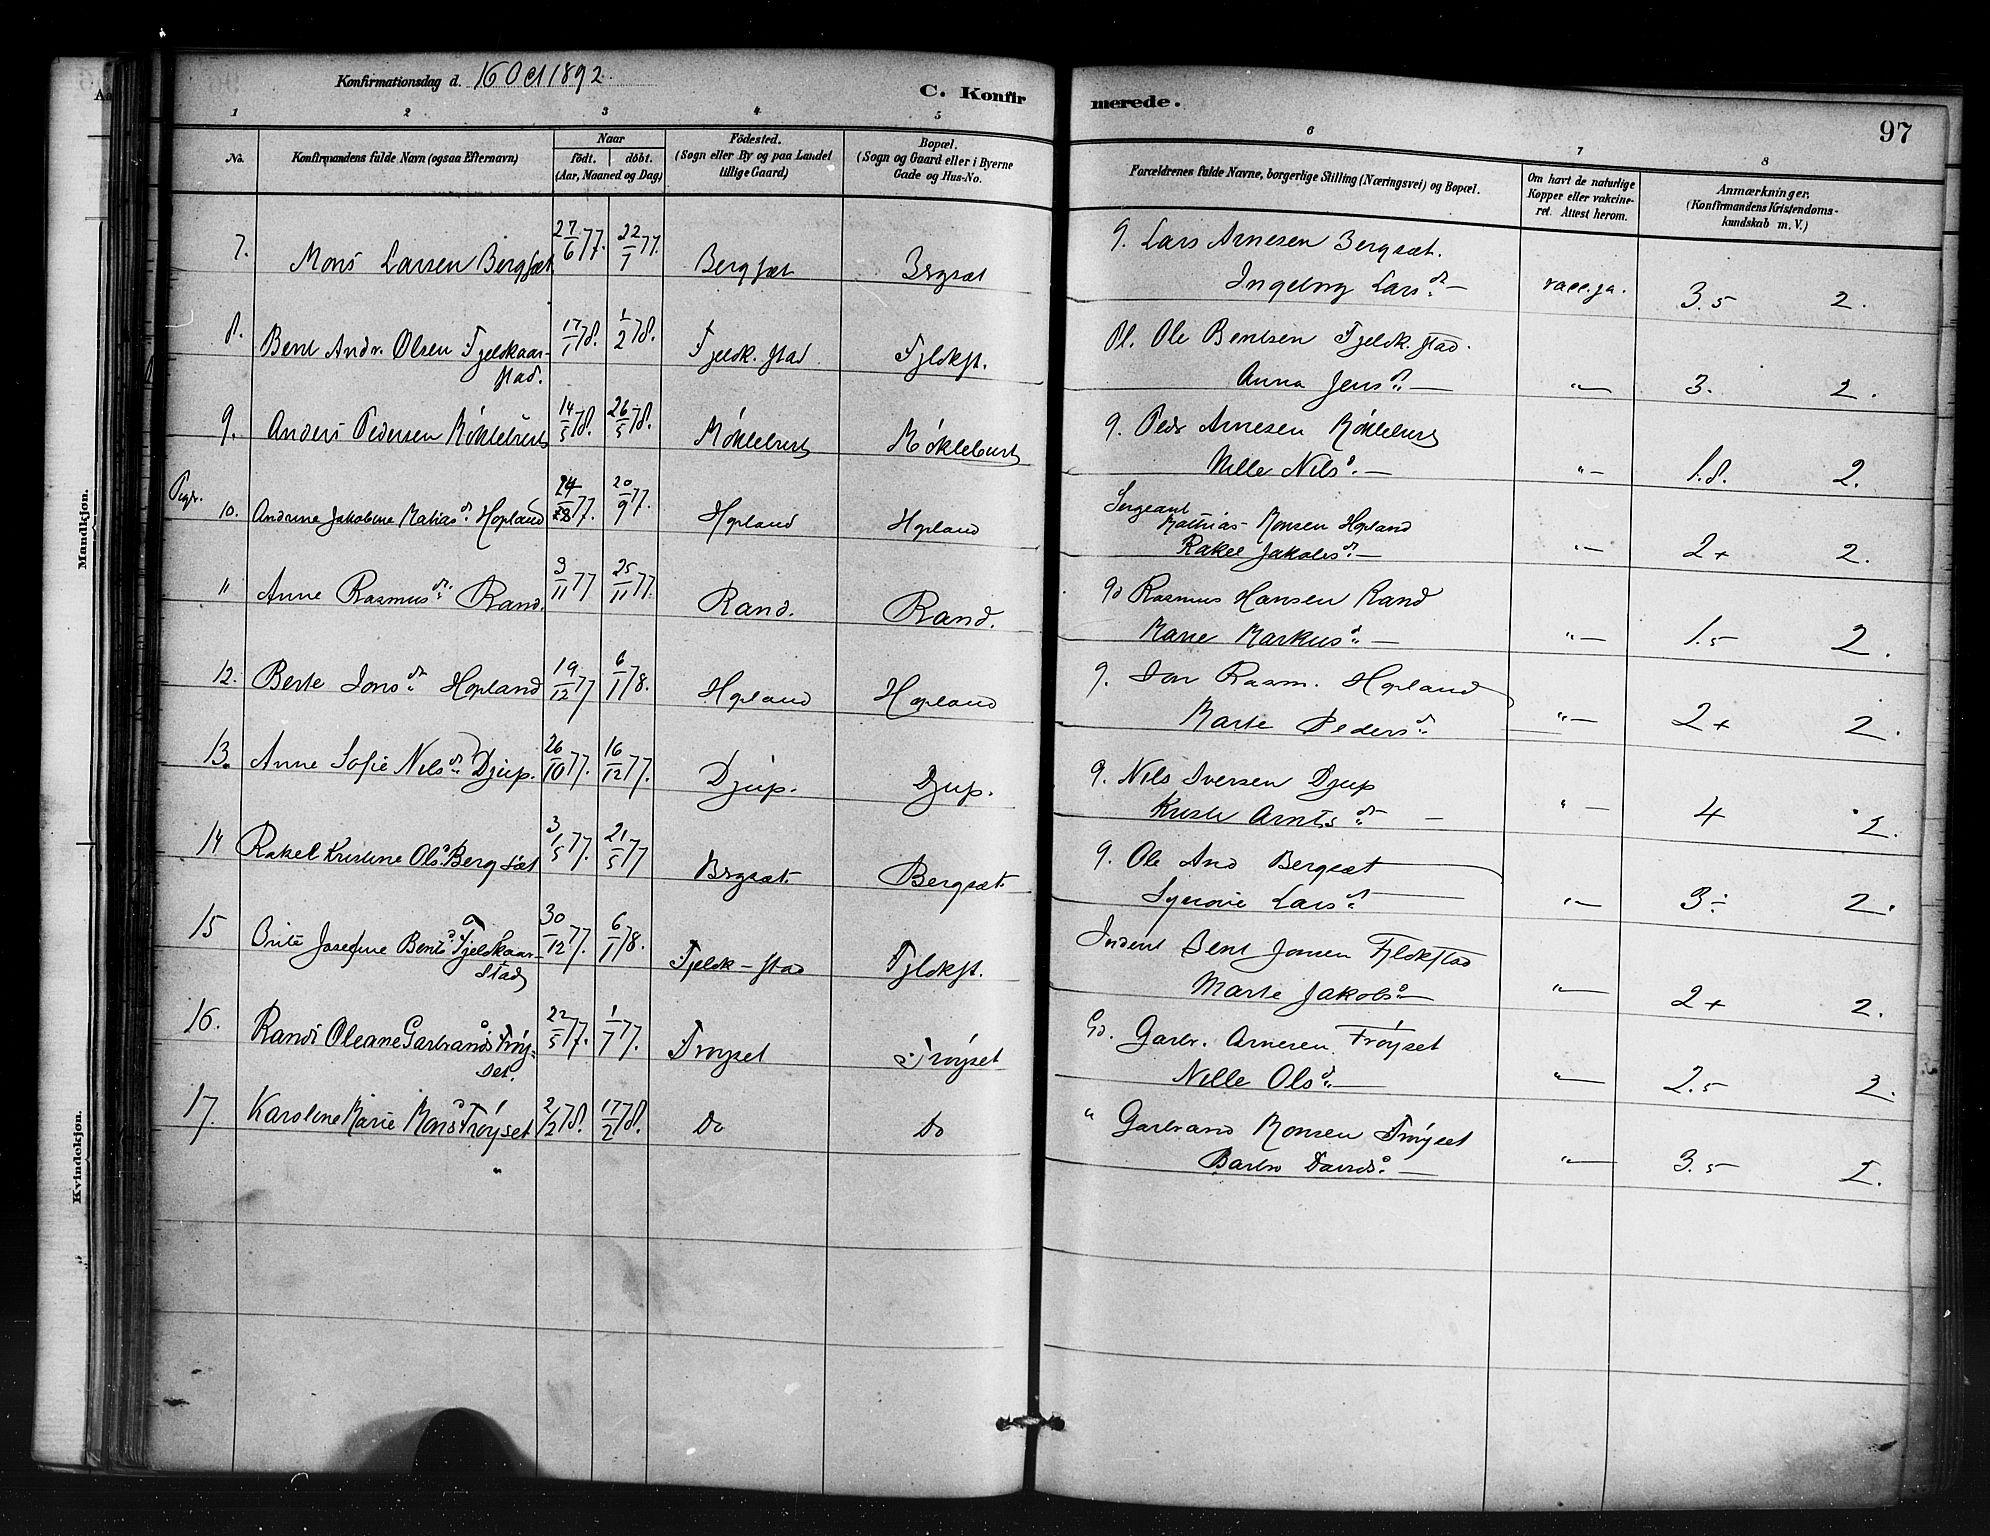 Konfirmationsdag d. 16 Oct 1892
C. Konfirmerede.
97
1 2 3 4 5 6 7 8
No. Konfirmandens fulde Navn (ogsaa Efternavn) Naar født. døbt. (Aar, Maaned og Dag) Fødested. (Sogn eller By og paa Landet tillige Gaard) Bopæl. (Sogn og Gaard eller i Byerne Gade og Hus-No. Forældrenes fulde Navne, borgerlige Stilling (Næringsvei) og Bopæl. Om havt de naturlige Kopper eller vakcineret. Attest herom. Anmærkninger. (Konfirmandens Kristendomskundskab m. V.)
7. Mons Larsen Bergsæt 27/6 77. 22/7 77. Bergsæt Bergsæt g. Lars Arnesen Bergsæt.
Ingeborg Larsd. — vacc. ja. 3.5 2.
8. Bent Andr. Olsen Fjeldkaar- 17/1 78. 1/2 78. Fjeldk. stad Fjldkst. Pl. Ole Bentsen Fjeldk. stad.
stad. Anna Jensd. — " — 3. 2.
9. Anders Pedersen Møklebust 14/5 78. 26/5 78. Møklebust Møklebust g. Peder Arnesen Møklebust
Nille Nilsd. — " — 1.8. 2.
Piger.
10. Andrine Jakobine Matiasd. Hopland 77. 20/9 77. Hopland Hopland Sergeant
Mathias Monsen Hopland
Rakel Jakobsd. — " — 2+ 2.
11 Anne Rasmusd. Rand. 3/11 77 25/11 77. Rand. Rand. gd Rasmus Hansen Rand
Marie Markusd. — " — 1.5 2.
12. Berte Jonsd. Hopland 19/12 77 6/1 78. Hopland Hopland g. Jon Rasm. Hopland
Marte Pedersd. " — 2+ 2.
13. Anne Sofie Nilsd. Djup. 26/10 77. 16/12 77. Djup. Djup. g. Nils Iversen Djup
Kristi Arntsd. — " — 4 2.
14 Rakel Kristine Olsd. Bergsæt 3/5 77. 21/5 77 Bergsæt. Bergsæt. g. Ole And Bergsæt
Synnøve Larsd. " — 3÷ 2.
15 Brite Josefine Bentsd. Fjeldkaar- 30/12 77. 6/1 78. Fjeldk-stad Fjldkst. Inderst Bent Jonsen Fjldkstad
stad Marte Jakobsd. — " — 2+ 2.
16. Randi Oleane Garbrandsd. Frøy- 22/5 77. 1/7 77. Frøyset Frøyset Gd. Garbr. Arnesen Frøyset
set. Nille Olsd. — " — 2.5 2.
17. Karoline Marie Monsd. Frøyset 2/2 78. 17/2 78. Do Do " Garbrand Monsen Frøyset
Barbro Davidsd. — " — 3.5 2.
Mandkjøn.
Kvindekjøn.